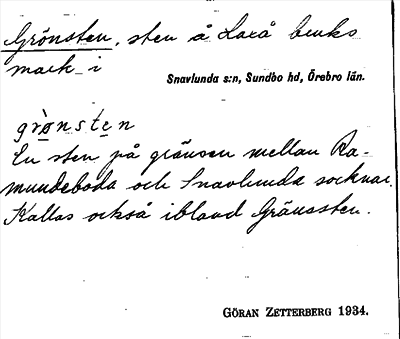 Grönsten, sten å Laxå bruks
mark i
Snavlunda s:n, Sundbo hd, Örebro län.
grø̀nste̱n
En sten på gränsen mellan Ra-
mundeboda och Snavlunda socknar.
Kallas också ibland Gränssten.
GÖRAN ZETTERBERG 1934.